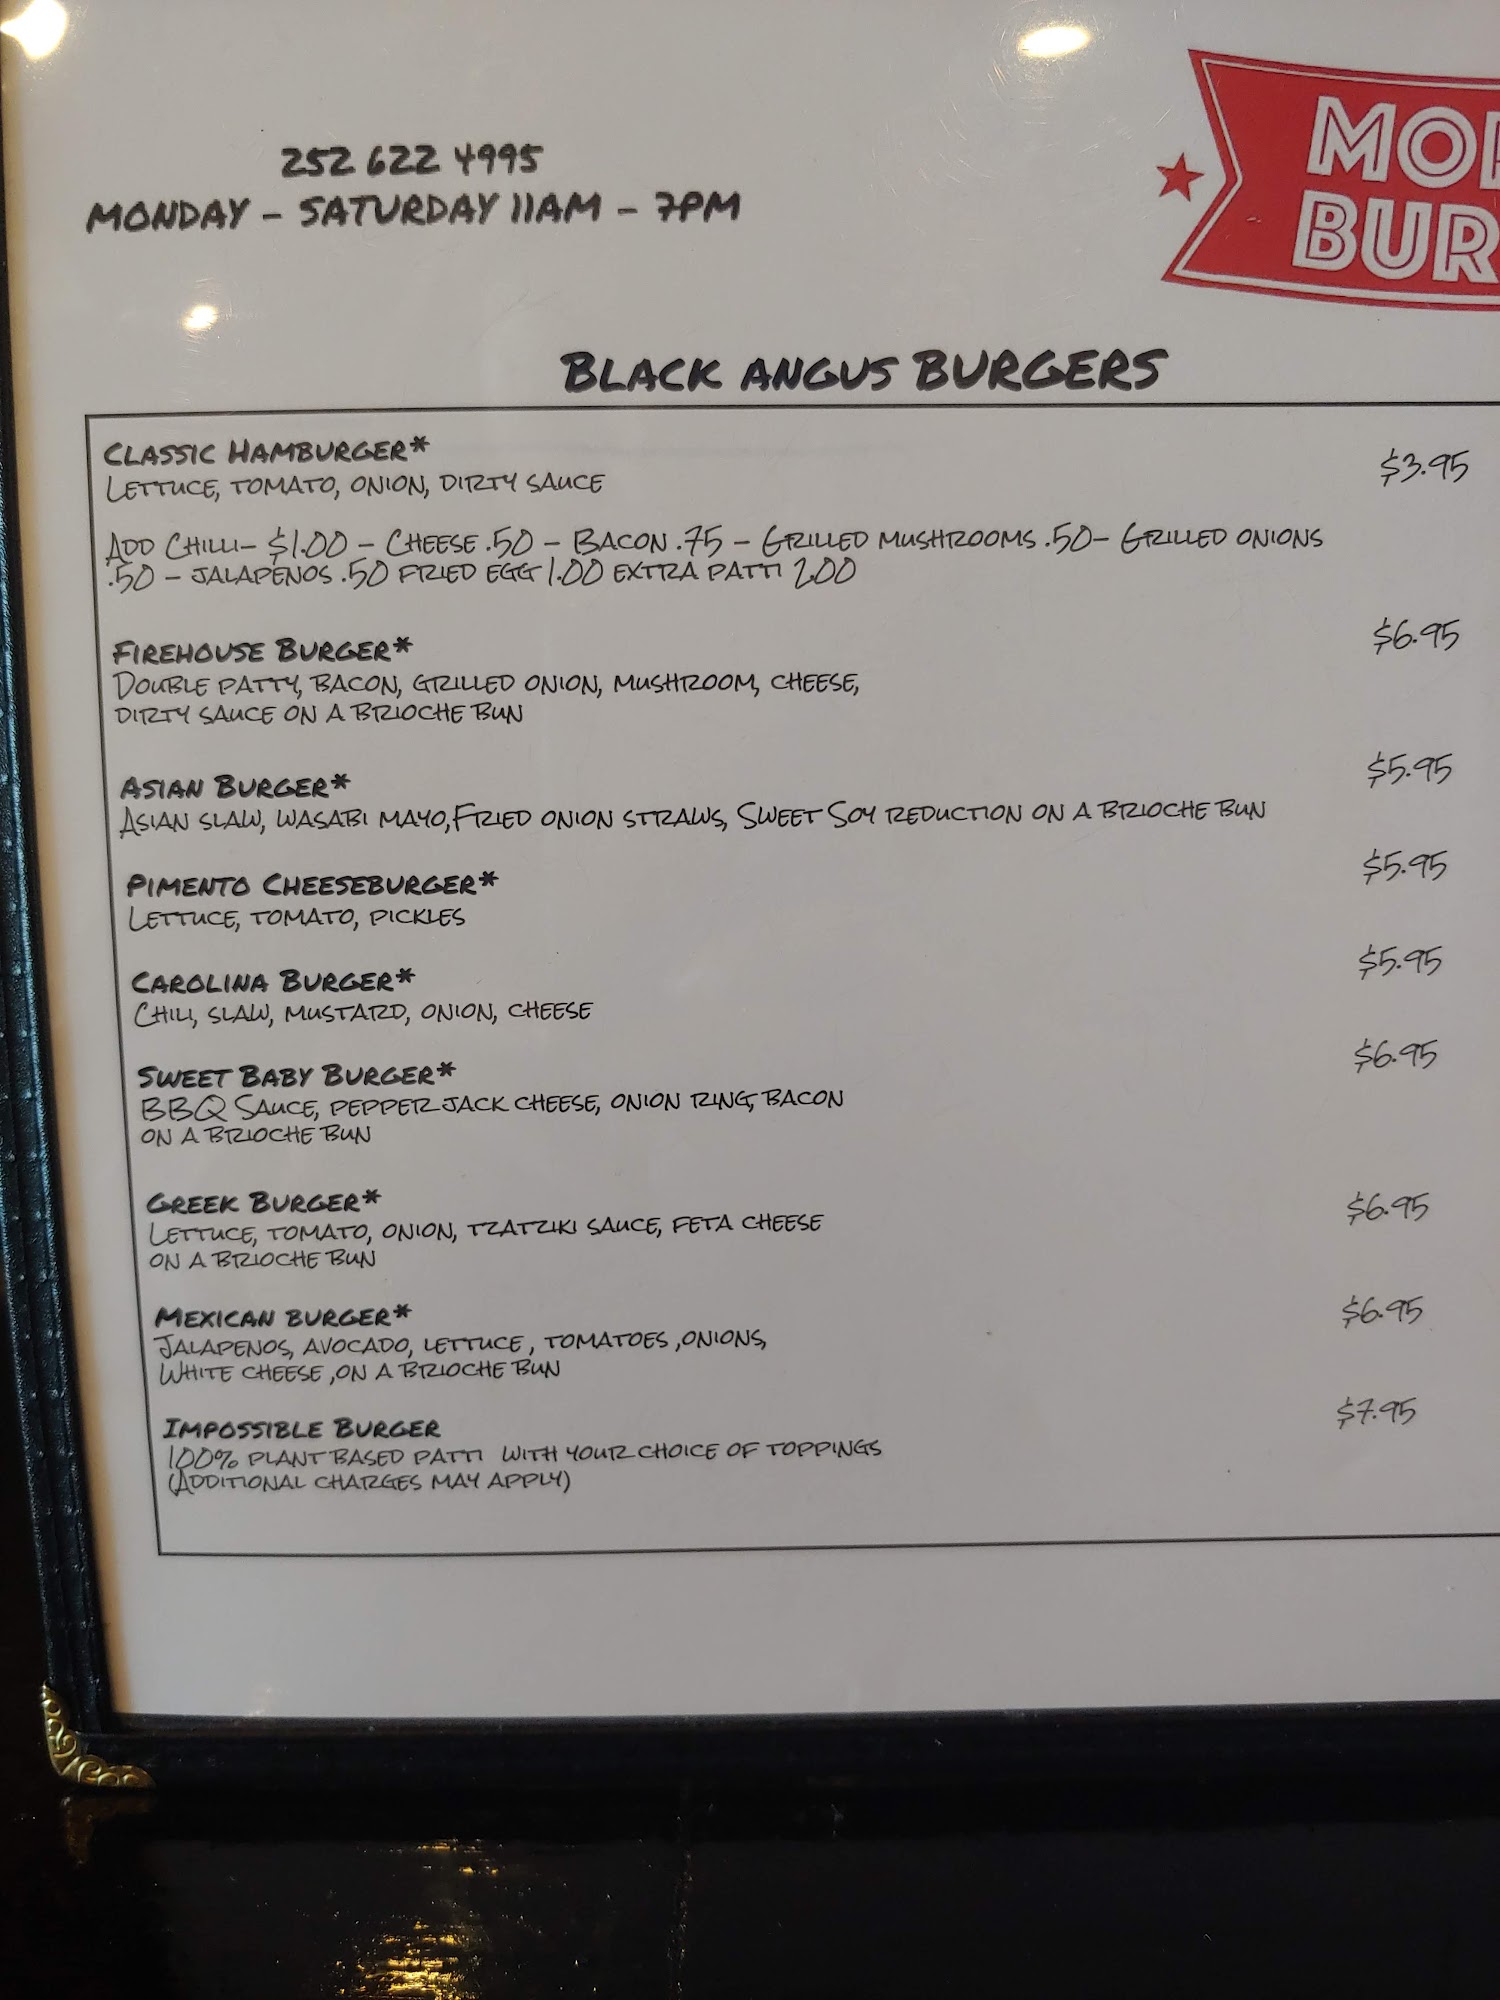 252 622 4995
MONDAY - SATURDAY 11AM - 7PM
BLACK ANGUS BURGERS
CLASSIC HAMBURGER*
$3.95
LETTUCE, TOMATO, ONION, DIRTY SAUCE
ADD CHILLI- $1.00 - CHEESE .50 - BACON .75 - GRILLED MUSHROOMS .50- GRILLED ONIONS
.50 - JALAPENOS .50 FRIED EGG 1.00 EXTRA PATTI 2.00
FIREHOUSE BURGER*
$6.95
DOUBLE PATTY, BACON, GRILLED ONION, MUSHROOM, CHEESE,
DIRTY SAUCE ON A BRIOCHE BUN
ASIAN BURGER*
$5.95
ASIAN SLAW, WASABI MAYO,FRIED ONION STRAWS, SWEET SOY REDUCTION ON A BRIOCHE BUN
PIMENTO CHEESEBURGER*
$5.95
LETTUCE, TOMATO, PICKLES
CAROLINA BURGER*
$5.95
CHILI, SLAW, MUSTARD, ONION, CHEESE
SWEET BABY BURGER*
$6.95
BBQ SAUCE, PEPPER JACK CHEESE, ONION RING, BACON
ON A BRIOCHE BUN
GREEK BURGER*
$6.95
LETTUCE, TOMATO, ONION, TZATZIKI SAUCE, FETA CHEESE
ON A BRIOCHE BUN
MEXICAN BURGER*
$6.95
JALAPENOS, AVOCADO, LETTUCE , TOMATOES ,ONIONS,
WHITE CHEESE ,ON A BRIOCHE BUN
IMPOSSIBLE BURGER
$7.95
100% PLANT BASED PATTI WITH YOUR CHOICE OF TOPPINGS
(ADDITIONAL CHARGES MAY APPLY)